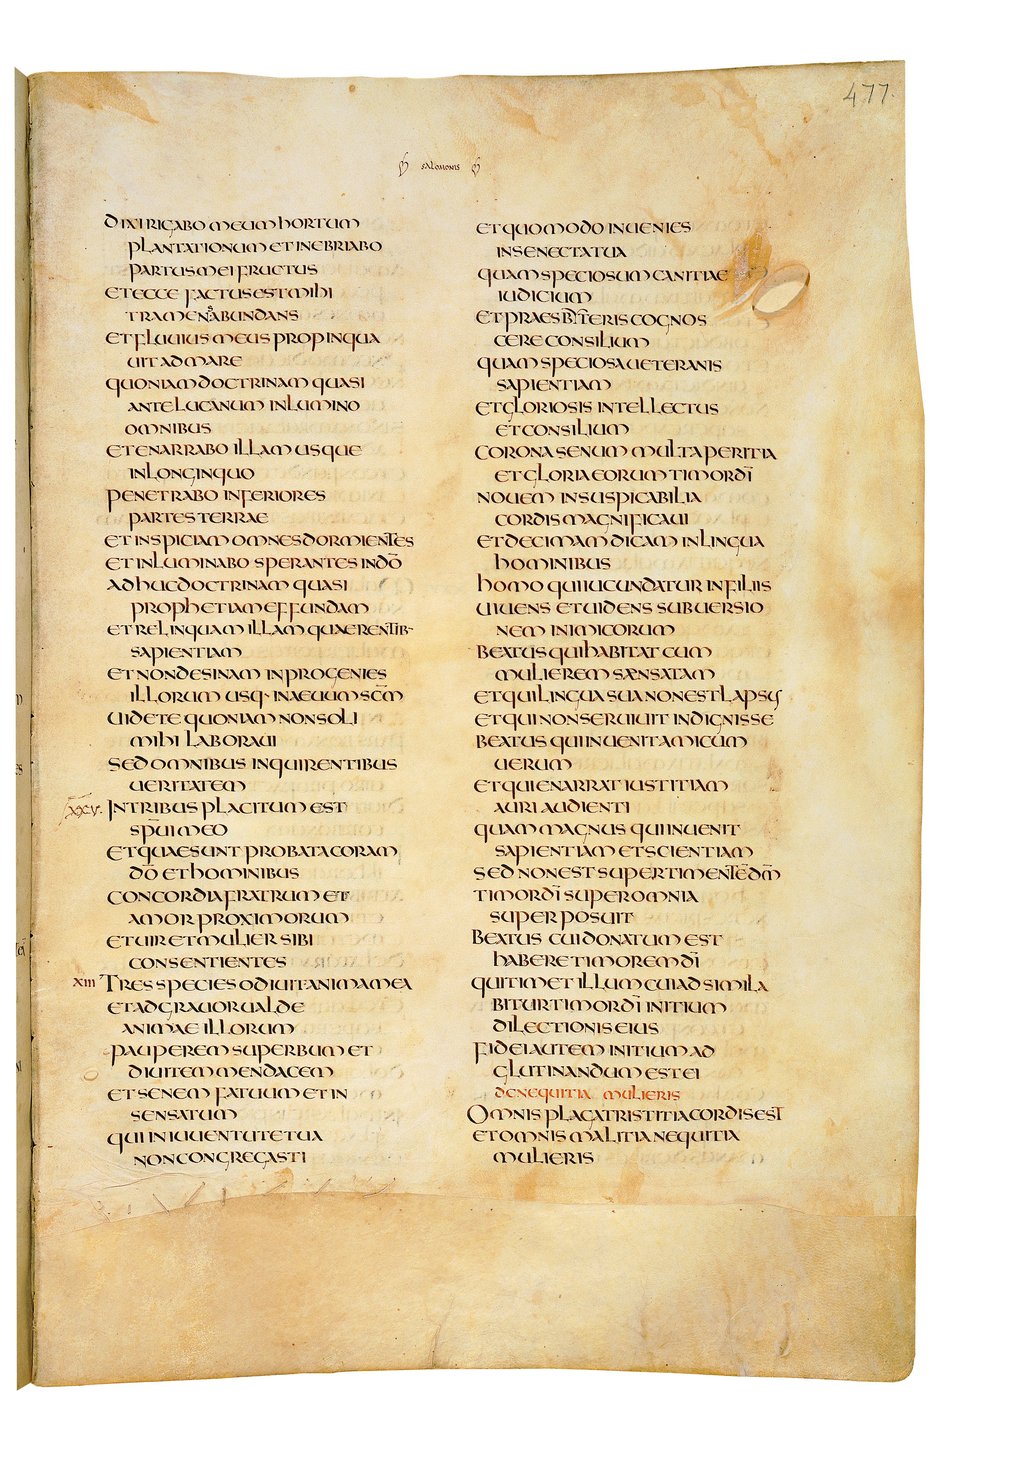 477.
SALOMONIS
DIXI RIGABO MEUM HORTUM
PLANTATIONUM ET INEBRIABO
PARTUS MEI FRUCTUS
ET ECCE FACTUS EST MIHI
TRAMENABUNDANS
ET FLUUIUS MEUS PROPINQUA
UIT AD MARE
QUONIAM DOCTRINAM QUASI
ANTELUCANUM INLUMINO
OMNIBUS
ET ENARRABO ILLAM USQUE
IN LONGINQUO
PENETRABO INFERIORES
PARTES TERRAE
ET INSPICIAM OMNES DORMIENTES
ET INLUMINABO SPERANTES IN DŌ
ADHUC DOCTRINAM QUASI
PROPHETIAM EFFUNDAM
ET RELINQUAM ILLAM QUAERENTIB·
SAPIENTIAM
ET NON DESINAM IN PROGENIES
ILLORUM USQ· IN AEUUM SC̄M
UIDETE QUONIAM NON SOLI
MIHI LABORAUI
SED OMNIBUS INQUIRENTIBUS
UERITATEM
XXV. IN TRIBUS PLACITUM EST
SPŪI MEO
ET QUAE SUNT PROBATA CORAM
DŌ ET HOMINIBUS
CONCORDIA FRATRUM ET
AMOR PROXIMORUM
ET UIR ET MULIER SIBI
CONSENTIENTES
XIII TRES SPECIES ODIUIT ANIMA MEA
ET ADGRAUOR UALDE
ANIMAE ILLORUM
PAUPEREM SUPERBUM ET
DIUITEM MENDACEM
ET SENEM FATUUM ET IN
SENSATUM
QUI IN IUUENTUTE TUA
NON CONGREGASTI
ET QUOMODO INUENIES
IN SENECTA TUA
QUAM SPECIOSUM CANITIAE
IUDICIUM
ET PRAESBYTERIS COGNOS
CERE CONSILIUM
QUAM SPECIOSA UETERANIS
SAPIENTIAM
ET GLORIOSIS INTELLECTUS
ET CONSILIUM
CORONA SENUM MULTA PERITIA
ET GLORIA EORUM TIMOR DĪ
NOUEM INSUSPICABILIA
CORDIS MAGNIFICAUI
ET DECIMAM DICAM IN LINGUA
HOMINIBUS
HOMO QUI IUCUNDATUR IN FILIIS
UIUENS ET UIDENS SUBUERSIO
NEM INIMICORUM
BEATUS QUI HABITAT CUM
MULIEREM SENSATAM
ET QUI LINGUA SUA NON EST LAPSUS
ET QUI NON SERUIUIT INDIGNIS SE
BEATUS QUI INUENIT AMICUM
UERUM
ET QUI ENARRAT IUSTITIAM
AURI AUDIENTI
QUAM MAGNUS QUI INUENIT
SAPIENTIAM ET SCIENTIAM
SED NON EST SUPER TIMENTĒ DM̄
TIMOR DĪ SUPER OMNIA
SUPERPOSUIT
BEATUS CUI DONATUM EST
HABERE TIMOREM DĪ
QUI TIMET ILLUM CUI ADSIMILA
BITUR TIMOR DĪ INITIUM
DILECTIONIS EIUS
FIDEI AUTEM INITIUM AD
GLUTINANDUM EST EI
DE NEQUITIA MULIERIS
OMNIS PLAGA TRISTITIA CORDIS EST
ET OMNIS MALITIA NEQUITIA
MULIERIS